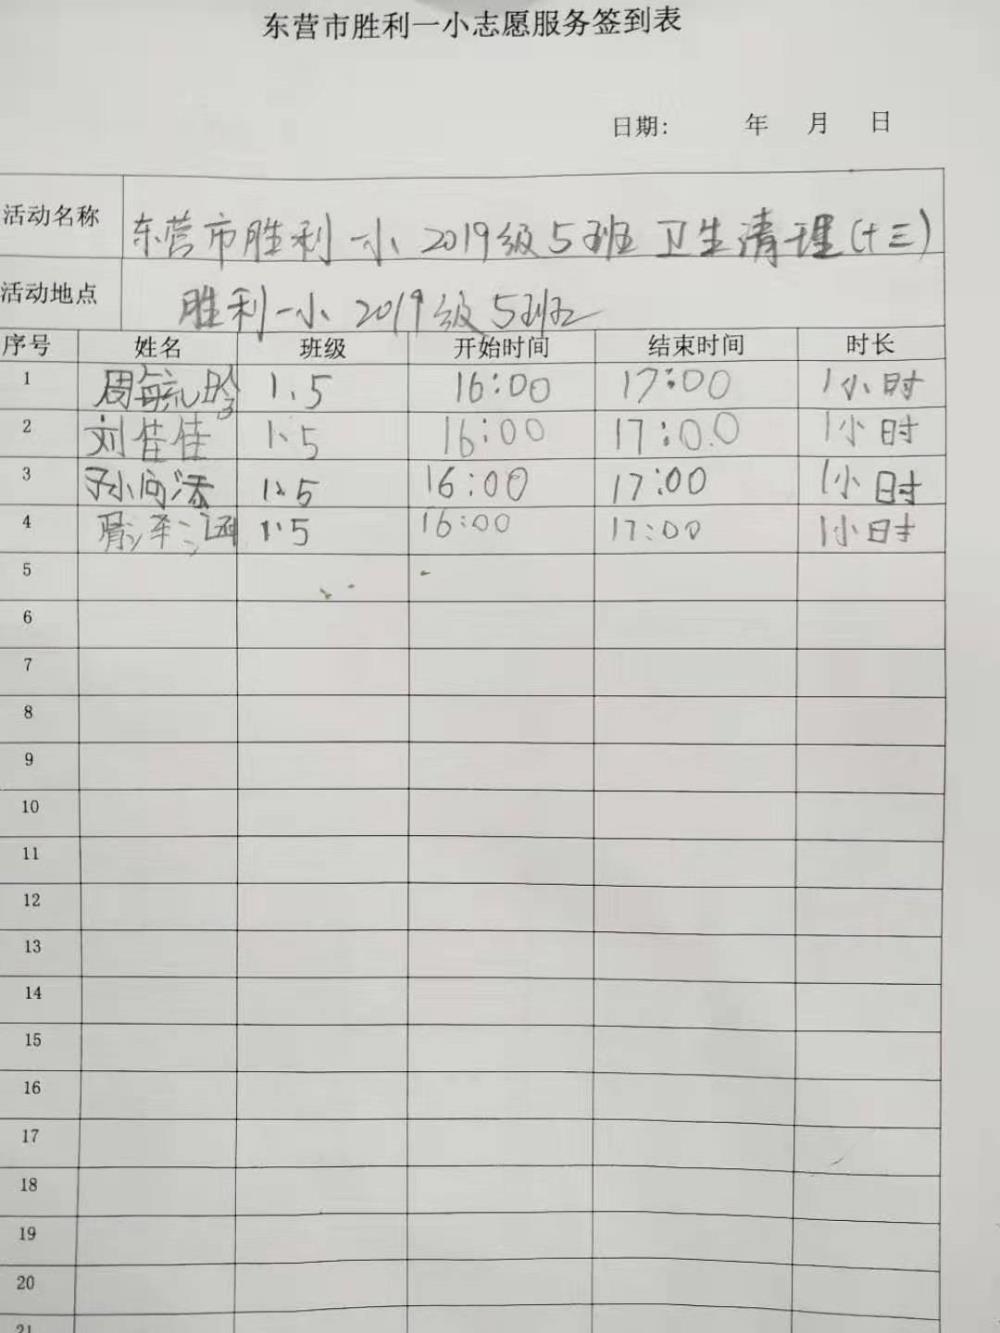 东营市胜利一小志愿服务签到表
日期: 年 月 日
活动名称 东营市胜利一小2019级5班卫生清理(十三)
活动地点 胜利一小2019级5班
序号 姓名 班级 开始时间 结束时间 时长
1 周毓 1.5 16:00 17:00 1小时
2 刘佳佳 1.5 16:00 17:00 1小时
3 孙向添 1.5 16:00 17:00 1小时
4 涵 1.5 16:00 17:00 1小时
5
6
7
8
9
10
11
12
13
14
15
16
17
18
19
20
21